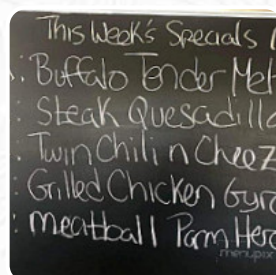 This Week's Specials (
: Buffalo Tender Mel
: Steak Quesadilla
: Twin Chili n Cheez
: Grilled Chicken Gyro
: Meatball Parm Hero
menupix